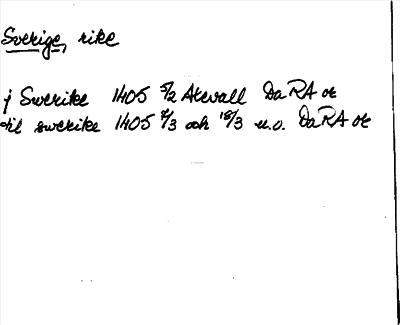 Sverige, rike
j Swerike 1405 5/2 Akvall DaRA or
til swerike 1405 7/3 och 18/3 u.o. DaRA or